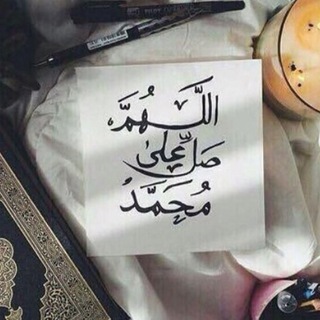 اللَّهُمَّ
صَلِّ عَلَى
مُحَمَّدٍ